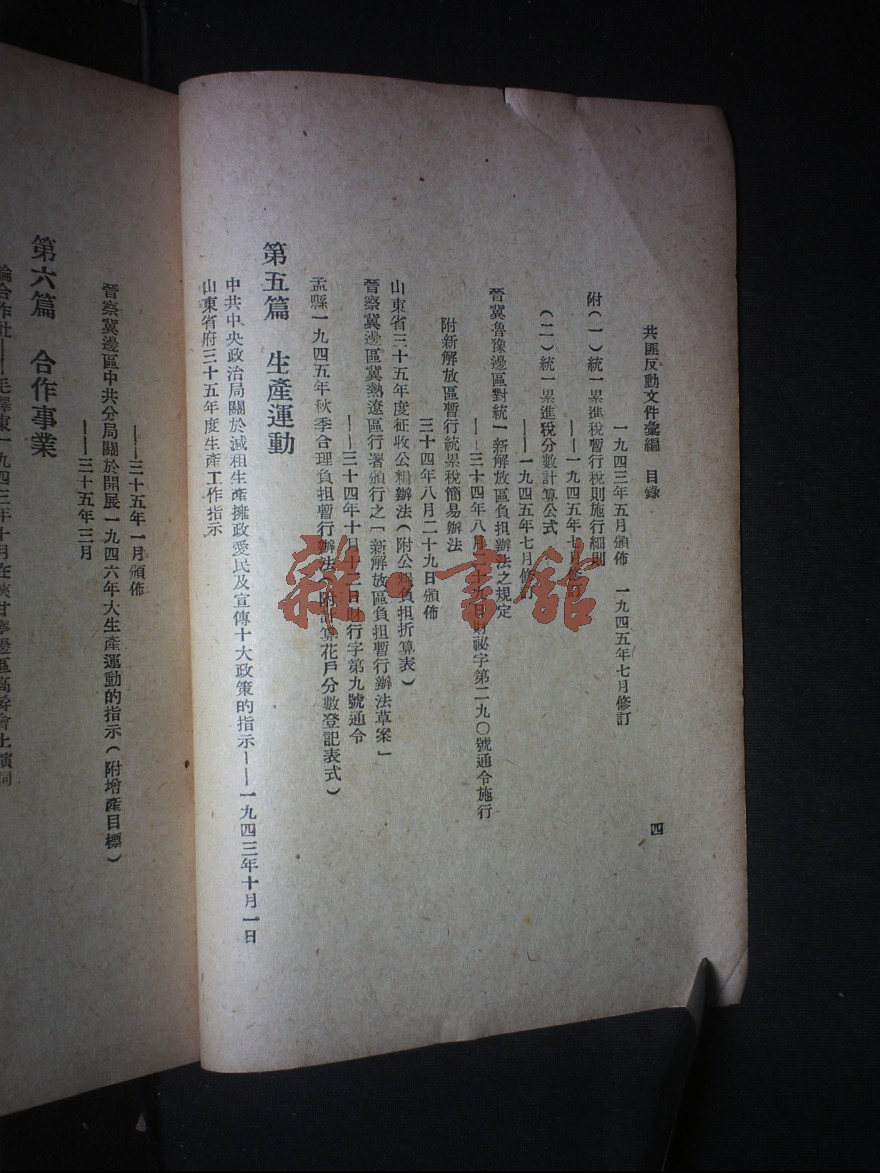 共匪反動文件彙編 目錄 四
一九四三年五月頒佈 一九四五年七月修訂
附(一)統一累進稅暫行稅則施行細則
——一九四五年七月
(二)統一累進稅分數計算公式
——一九四五年七月修訂
晉冀魯豫邊區對統一新解放區負担辦法之規定
——三十四年八月二十九日財祕字第二九〇號通令施行
附新解放區暫行統累稅簡易辦法
三十四年八月二十九日頒佈
山東省三十五年度征收公糧辦法(附公糧負担折算表)
晉察冀邊區冀熱遼區行署頒行之「新解放區負担暫行辦法草案」
——三十四年十月十二日財行字第九號通令
孟縣一九四五年秋季合理負担暫行辦法(附計算花戶分數登記表式)
第五篇 生產運動
中共中央政治局關於減租生產擁政愛民及宣傳十大政策的指示——一九四三年十月一日
山東省府三十五年度生產工作指示
——三十五年一月頒佈
晉察冀邊區中共分局關於開展一九四六年大生產運動的指示(附增產目標)
——三十五年三月
第六篇 合作事業
論合作社——毛澤東一九四三年十月在陝甘寧邊區高幹會上演詞
雜書館